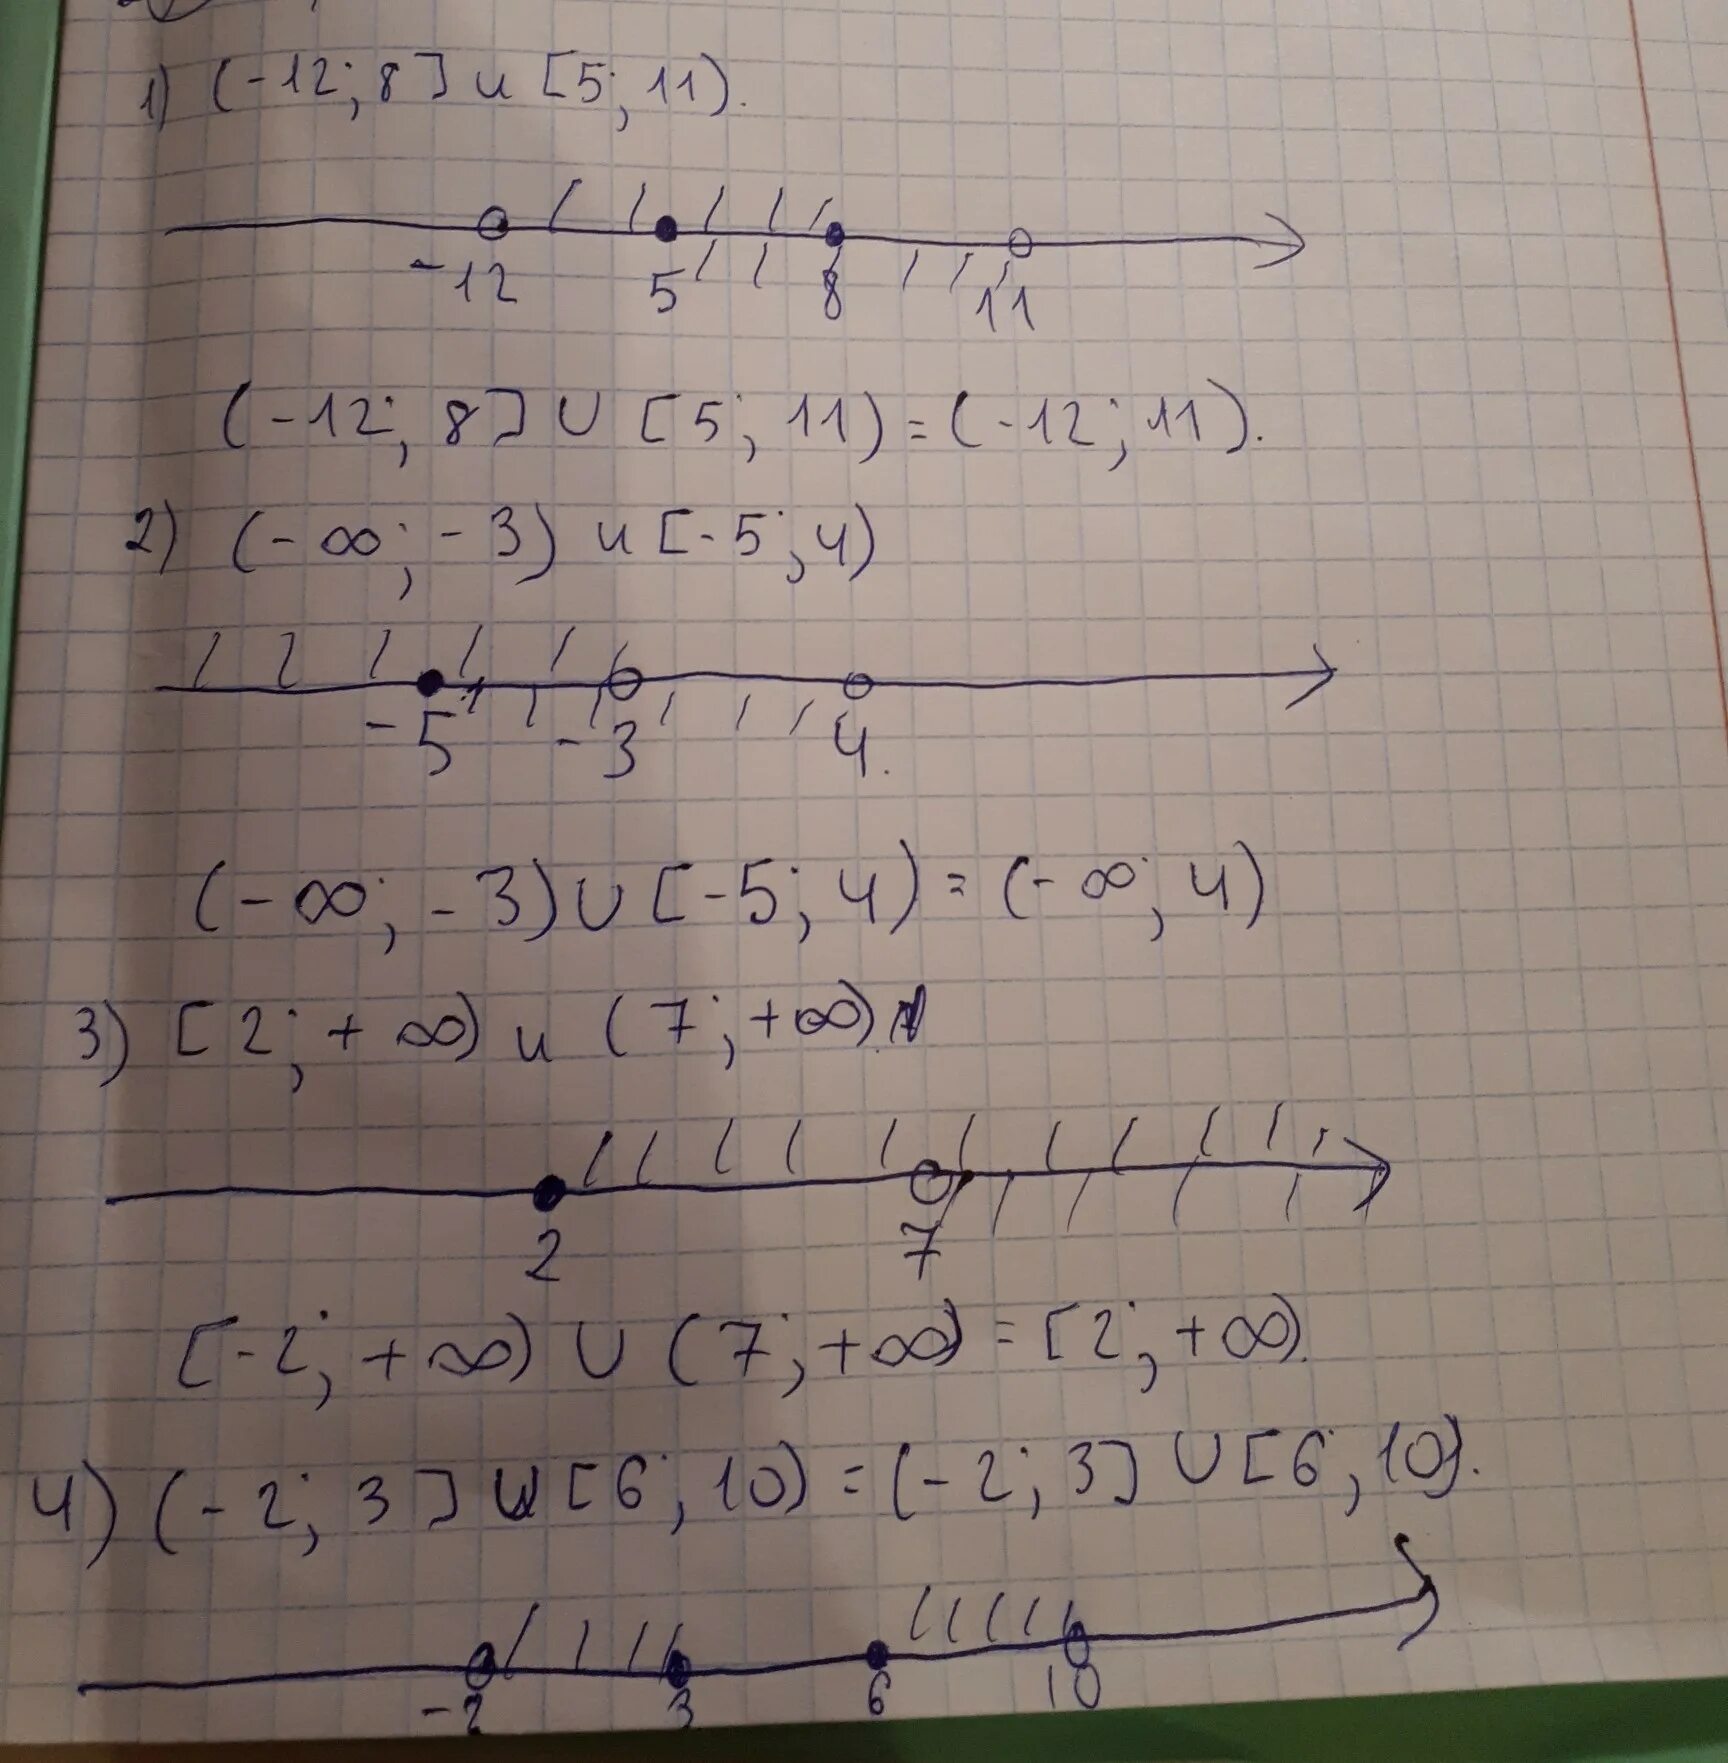 1) (-12; 8] и [5; 11).
-12 5 8 11
(-12; 8] ∪ [5; 11) = (-12; 11).
2) (-∞; -3) и [-5; 4)
-5 -3 4.
(-∞; -3) ∪ [-5; 4) = (-∞; 4)
3) [2; +∞) и (7; +∞).
2 7
[-2; +∞) ∪ (7; +∞) = [2; +∞).
4) (-2; 3] ∪ [6; 10) = (-2; 3] ∪ [6; 10).
-2 3 6 10